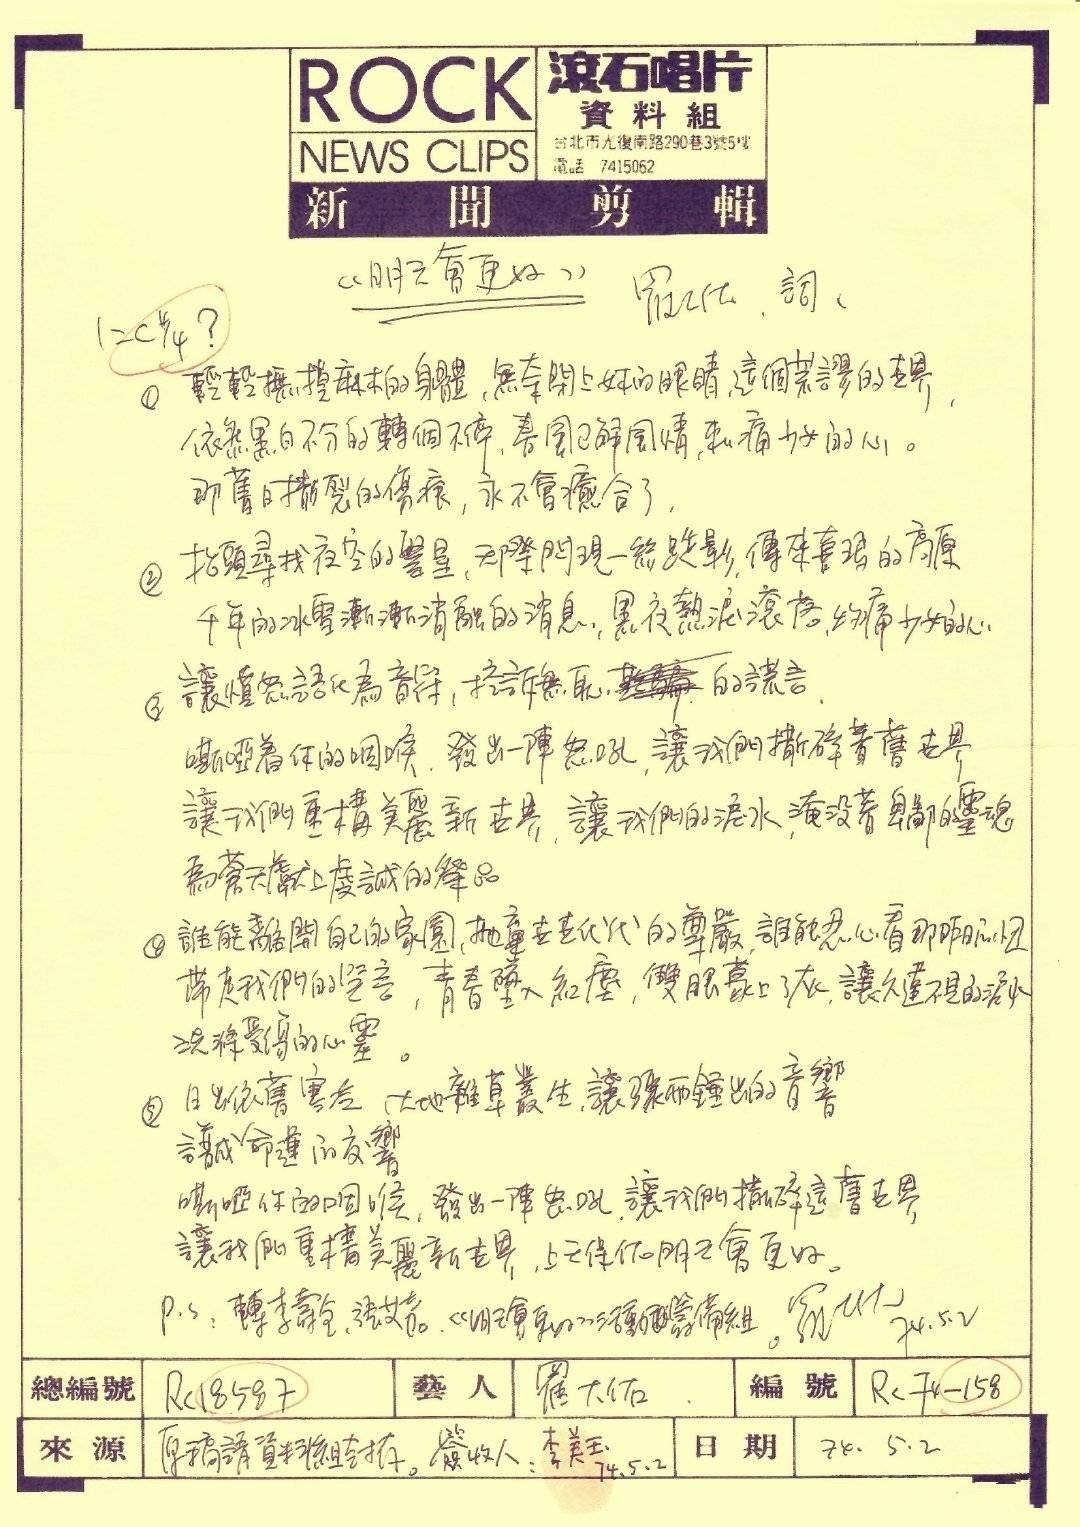 ROCK
NEWS CLIPS
滾石唱片
資料組
台北市光復南路290巷3號5樓
電話 7415062
新聞剪輯
《明天會更好》 羅大佑、詞、
1=C 4/4?
① 輕輕撫摸麻木的身體,無奈閉上妳的眼睛,這個荒謬的世界,
依然黑白不分的轉個不停,春風已解風情,刺痛少女的心。
那舊日撕裂的傷痕,永不會癒合了,
② 抬頭尋找夜空的繁星,天際閃現一絲跌影,傳來喜瑪的高原
千年的冰雪漸漸消融的消息,黑夜熱淚滾落,灼痛少女的心
③ 讓憤怒話化為音符,控訴無恥 的謊言,
嘶啞着你的咽喉,發出一陣怒吼,讓我們撕碎舊世界
讓我們重構美麗新世界,讓我們的淚水,淹沒著卑鄙的靈魂
為蒼天獻上虔誠的祭品
④ 誰能離開自己的家園,拋棄世世代代的尊嚴,誰能忍心看那昨日的
帶走我們的 ,青春墮入紅塵,雙眼蒙上了灰,讓久違不見的淚水
洗滌受傷的心靈。
⑤ 日出依舊寒冷 大地雜草叢生,讓 鐘出的音響
譜成命運的交響
嘶啞你的咽喉,發出一陣怒吼,讓我們撕碎這舊世界
讓我們重構美麗新世界,上天保佑明天會更好。
P.S:轉李壽全,張艾嘉。《明天會更好》活動籌備組。羅大佑 74.5.2
總編號 Rc18587 藝人 羅大佑 編號 Rc74-158
來源 原稿請資料組封存。簽收人:李美玉 74.5.2 日期 74. 5. 2